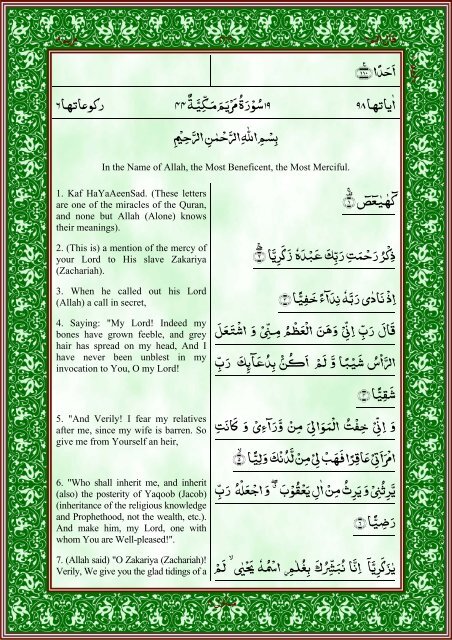 اَحَدًا ﴿۱۱۰﴾
اٰیاتها ۹۸ ۱۹ سُوْرَةُ مَرْيَمَ مَكِّيَّةٌ ۴۴ رکوعاتها ۶
بِسْمِ اللّٰهِ الرَّحْمٰنِ الرَّحِيْمِ
In the Name of Allah, the Most Beneficent, the Most Merciful.
كٓهٰيٰعٓصٓ ﴿۱﴾
1. Kaf HaYaAeenSad. (These letters
are one of the miracles of the Quran,
and none but Allah (Alone) knows
their meanings).
ذِكْرُ رَحْمَتِ رَبِّكَ عَبْدَهٗ زَكَرِيَّا ﴿۲﴾
2. (This is) a mention of the mercy of
your Lord to His slave Zakariya
(Zachariah).
اِذْ نَادٰى رَبَّهٗ نِدَآءً خَفِيًّا ﴿۳﴾
3. When he called out his Lord
(Allah) a call in secret,
قَالَ رَبِّ اِنِّيْ وَهَنَ الْعَظْمُ مِنِّيْ وَ اشْتَعَلَ
الرَّاْسُ شَيْبًا وَّ لَمْ اَكُنْۢ بِدُعَآئِكَ رَبِّ
شَقِيًّا ﴿۴﴾
4. Saying: "My Lord! Indeed my
bones have grown feeble, and grey
hair has spread on my head, And I
have never been unblest in my
invocation to You, O my Lord!
وَ اِنِّيْ خِفْتُ الْمَوَالِيَ مِنْ وَّرَآءِيْ وَ كَانَتِ
امْرَاَتِيْ عَاقِرًا فَهَبْ لِيْ مِنْ لَّدُنْكَ وَلِيًّا ﴿۵﴾
5. "And Verily! I fear my relatives
after me, since my wife is barren. So
give me from Yourself an heir,
يَّرِثُنِيْ وَ يَرِثُ مِنْ اٰلِ يَعْقُوْبَ ۖۗ وَ اجْعَلْهُ رَبِّ
رَضِيًّا ﴿۶﴾
6. "Who shall inherit me, and inherit
(also) the posterity of Yaqoob (Jacob)
(inheritance of the religious knowledge
and Prophethood, not the wealth, etc.).
And make him, my Lord, one with
whom You are Well-pleased!".
يٰزَكَرِيَّآ اِنَّا نُبَشِّرُكَ بِغُلٰمِ ۟اسْمُهٗ يَحْيٰى ۙ لَمْ
7. (Allah said) "O Zakariya (Zachariah)!
Verily, We give you the glad tidings of a